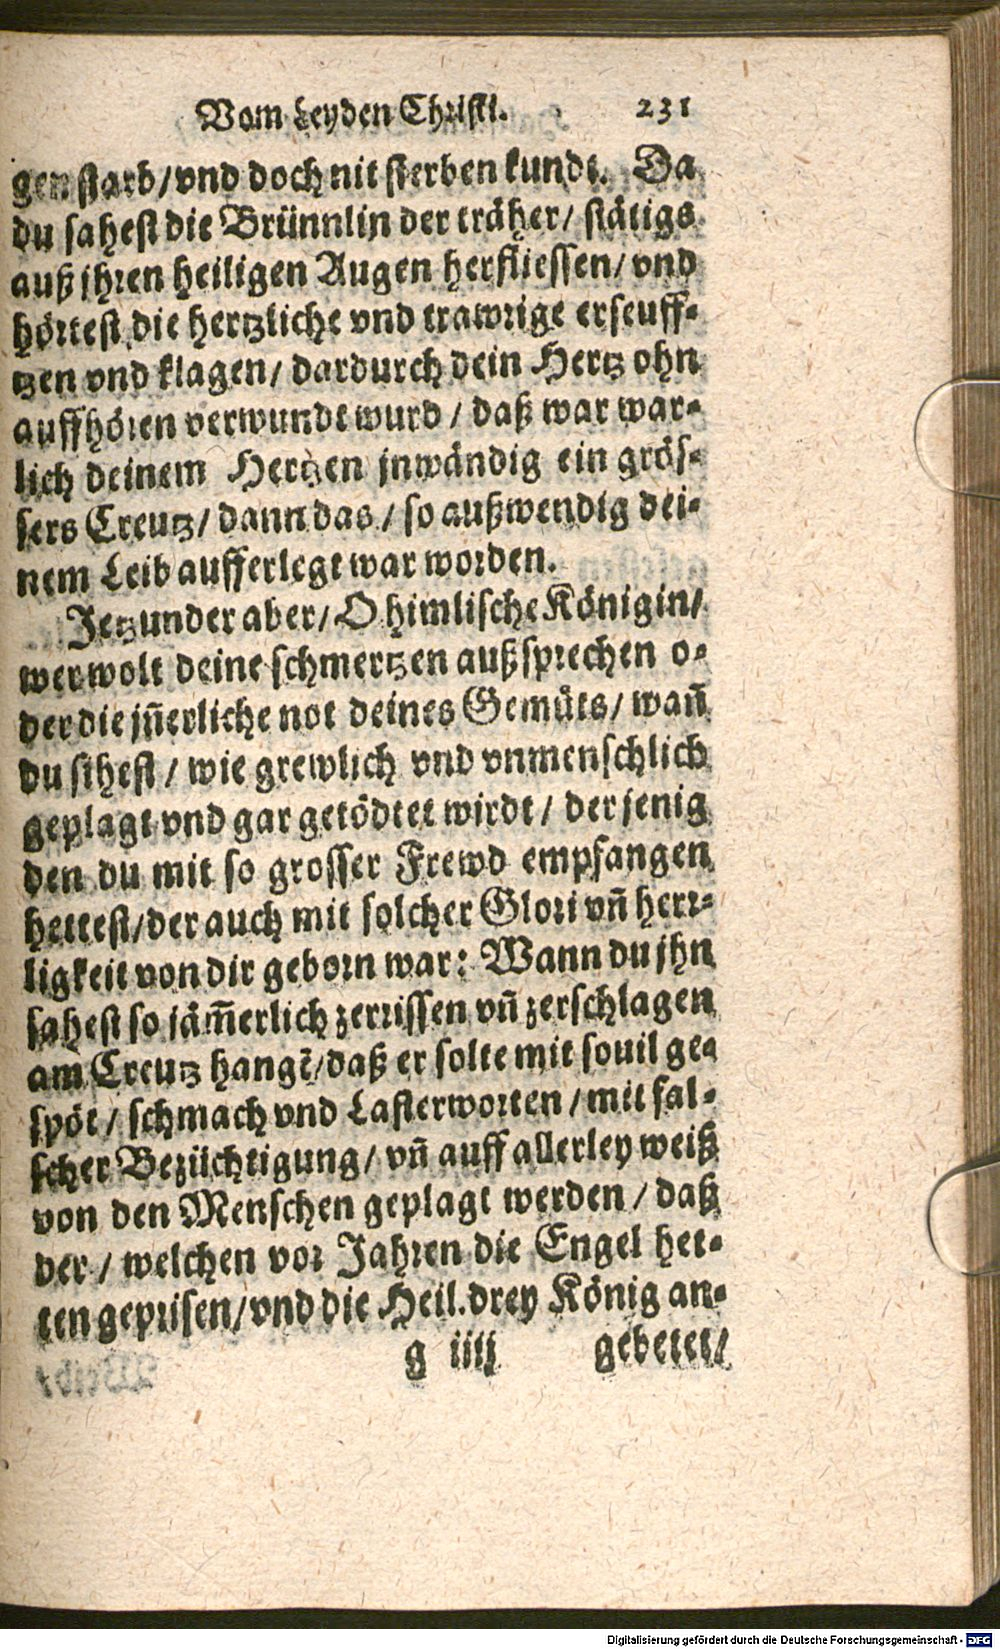 Vom Leyden Christi. 231
gen starb/vnd doch nit sterben kundt. Da
du sahest die Brünnlin der träher/ stätigs
auß jhren heiligen Augen herfliessen/ vnd
hörtest die hertzliche vnd trawrige erseuff-
tzen vnd klagen/ dardurch dein Hertz ohn
auffhören verwundt wurd / daß war war-
lich deinem Hertzen jnwändig ein grös-
sers Creutz/ dann das / so außwendig dei-
nem Leib aufferlegt war worden.
Jetzunder aber/ O himlische Königin/
wer wolt deine schmertzen außsprechen o-
der die jñerliche not deines Gemüts/ wañ
du sihest / wie grewlich vnd vnmenschlich
geplagt vnd gar getödtet wirdt / der jenig
den du mit so grosser Frewd empfangen
hettest/der auch mit solcher Glori vñ herr-
ligkeit von dir geborn war: Wann du jhn
sahest so jäm̃erlich zerrissen vñ zerschlagen
am Creutz hangẽ/daß er solte mit souil ge-
spöt / schmach vnd Lasterworten / mit fal-
scher Bezüchtigung/ vñ auff allerley weiß
von den Menschen geplagt werden / daß
der / welchen vor Jahren die Engel het-
ten geprisen/vnd die Heil. drey König an-
g iiij gebetet/
Digitalisierung gefördert durch die Deutsche Forschungsgemeinschaft - DFG